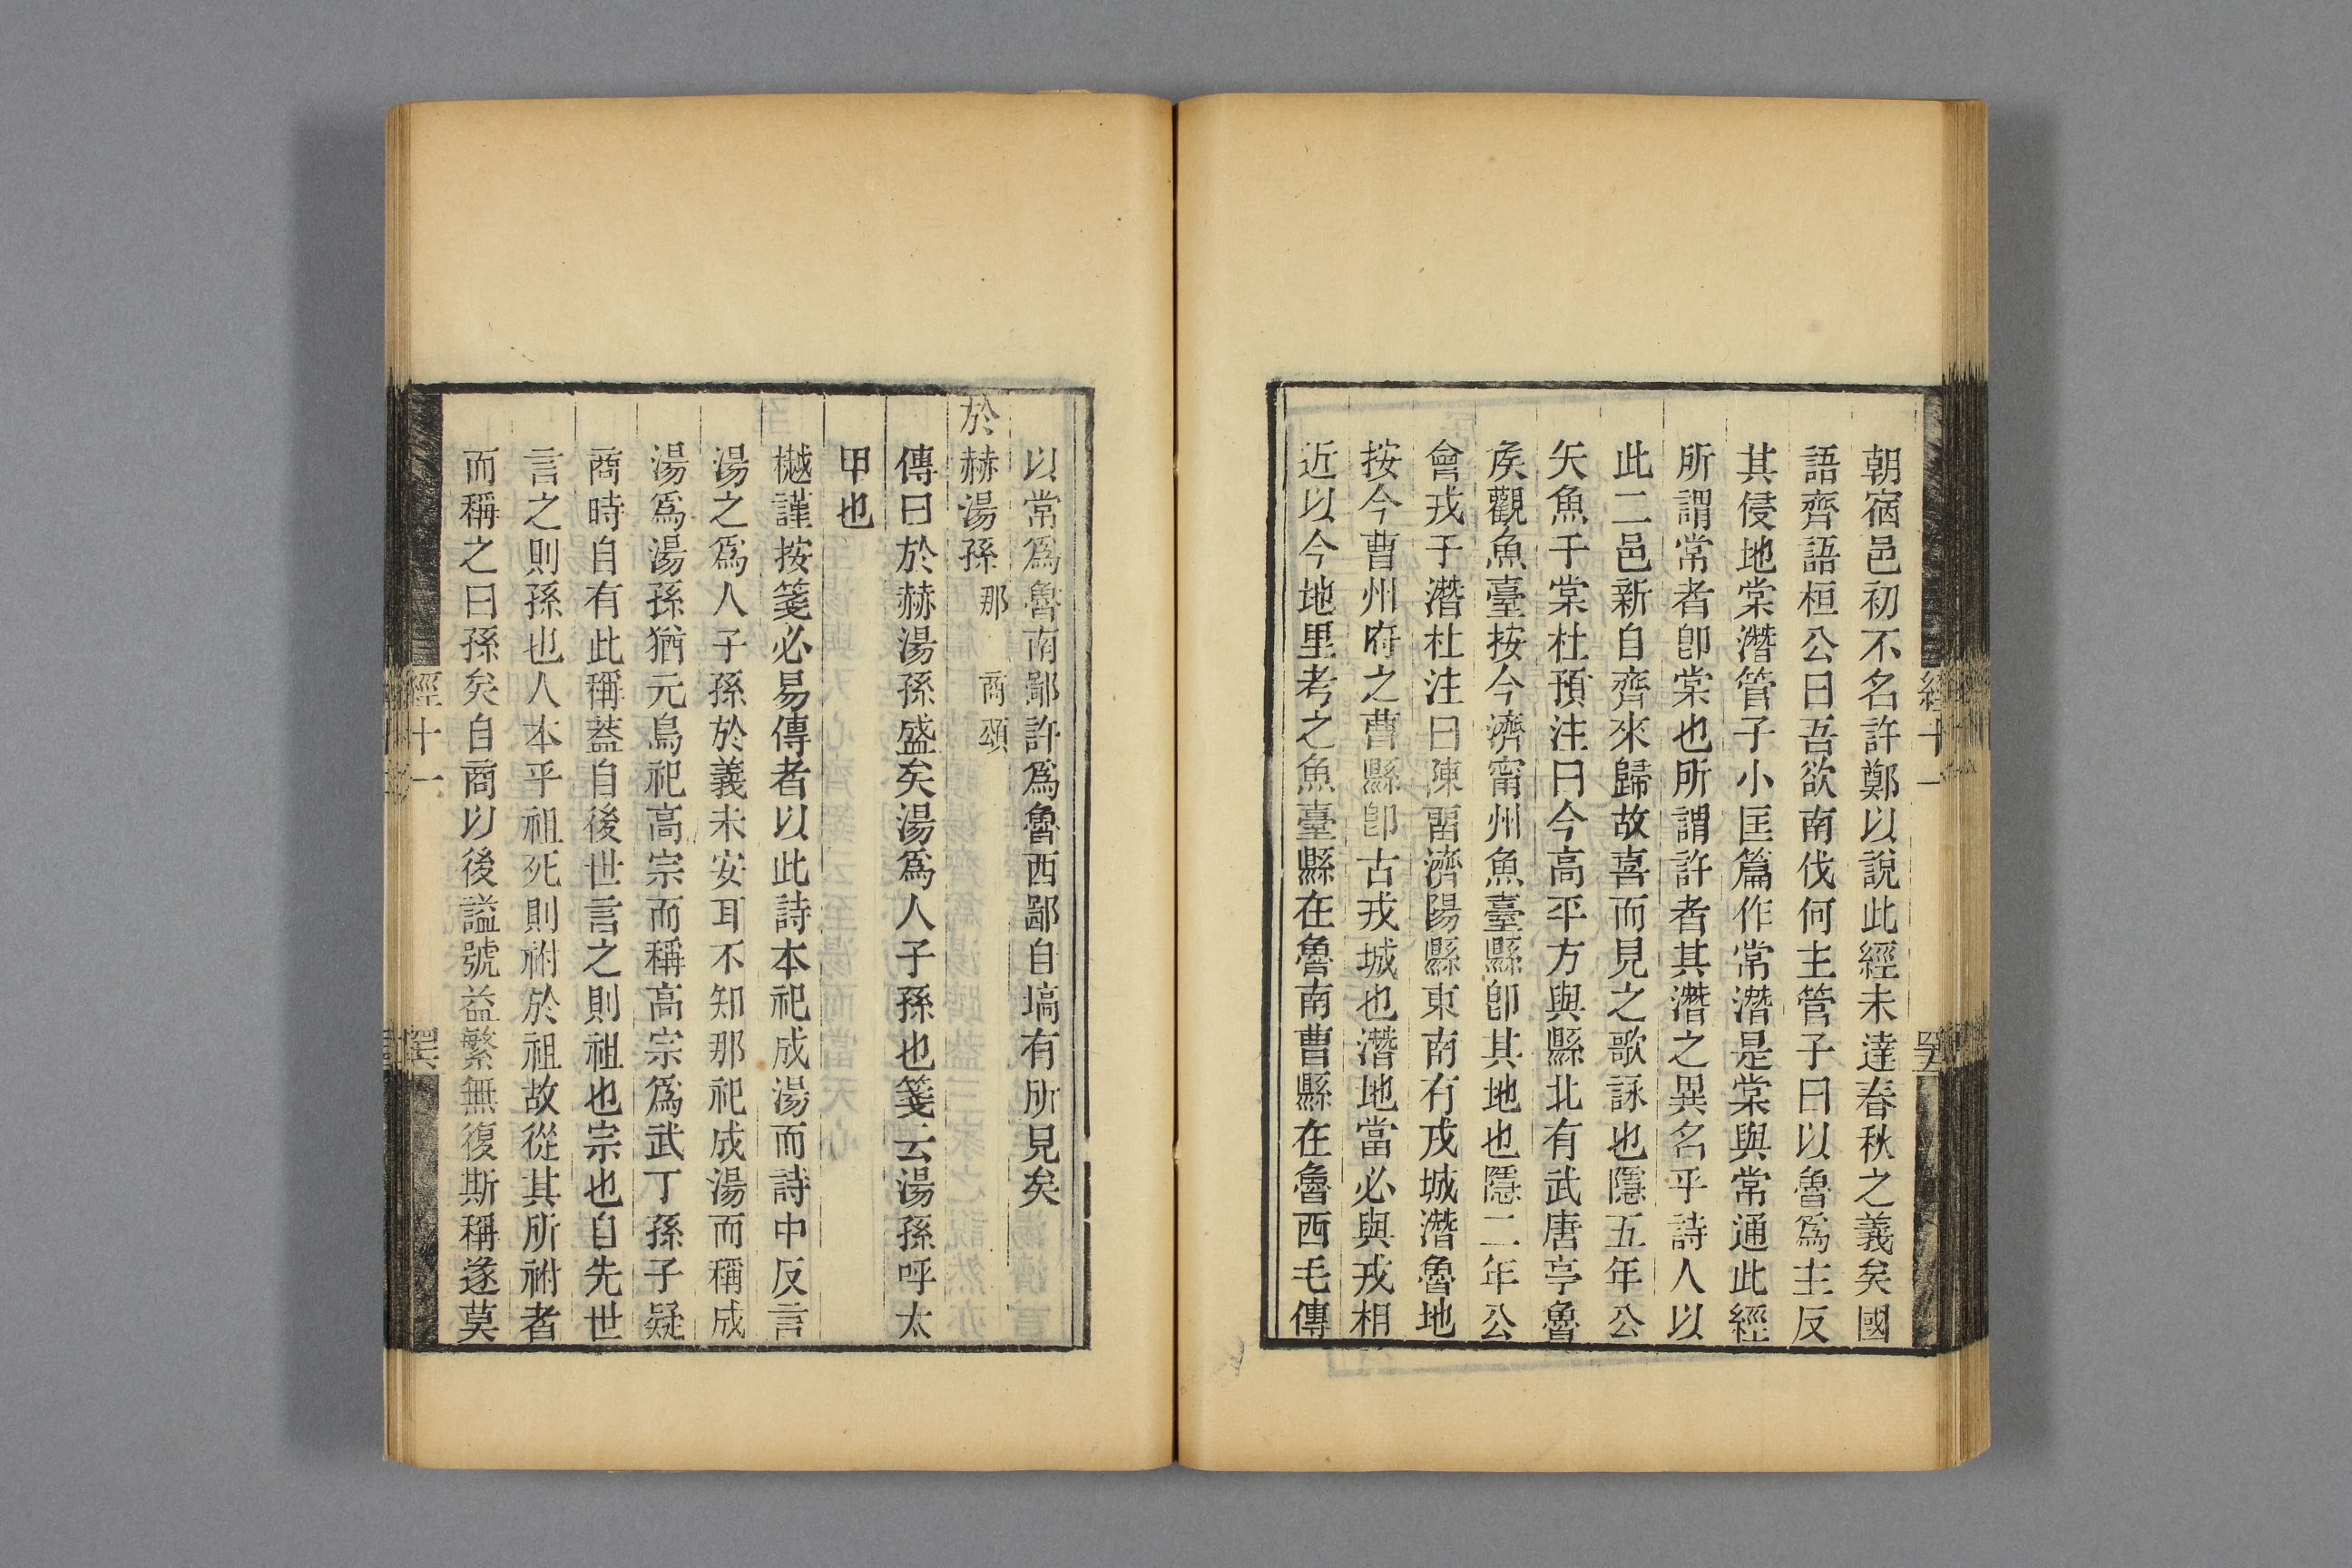 朝宿邑初不名許鄭以說此經未達春秋之義矣國
語齊語桓公曰吾欲南伐何主管子曰以魯爲主反
其侵地棠潛管子小匡篇作常潛是棠與常通此經
所謂常者卽棠也所謂許者其潛之異名乎詩人以
此二邑新自齊來歸故喜而見之歌詠也隱五年公
矢魚于棠杜預注曰今高平方與縣北有武唐亭魯
矦觀魚臺按今濟甯州魚臺縣卽其地也隱二年公
會戎于潛杜注曰陳畱濟陽縣東南有戎城潛魯地
按今曹州府之曹縣卽古戎城也潛地當必與戎相
近以今地里考之魚臺縣在魯南曹縣在魯西毛傳
以常爲魯南鄙許爲魯西鄙自塙有所見矣
於赫湯孫 那 商頌
傳曰於赫湯孫盛矣湯爲人子孫也箋云湯孫呼太
甲也
樾謹按箋必易傳者以此詩本祀成湯而詩中反言
湯之爲人子孫於義未安耳不知那祀成湯而稱成
湯爲湯孫猶元鳥祀高宗而稱高宗爲武丁孫子疑
商時自有此稱葢自後世言之則祖也宗也自先世
言之則孫也人本乎祖死則祔於祖故從其所祔者
而稱之曰孫矣自商以後謚號益繁無復斯稱遂莫
經十一
經十一